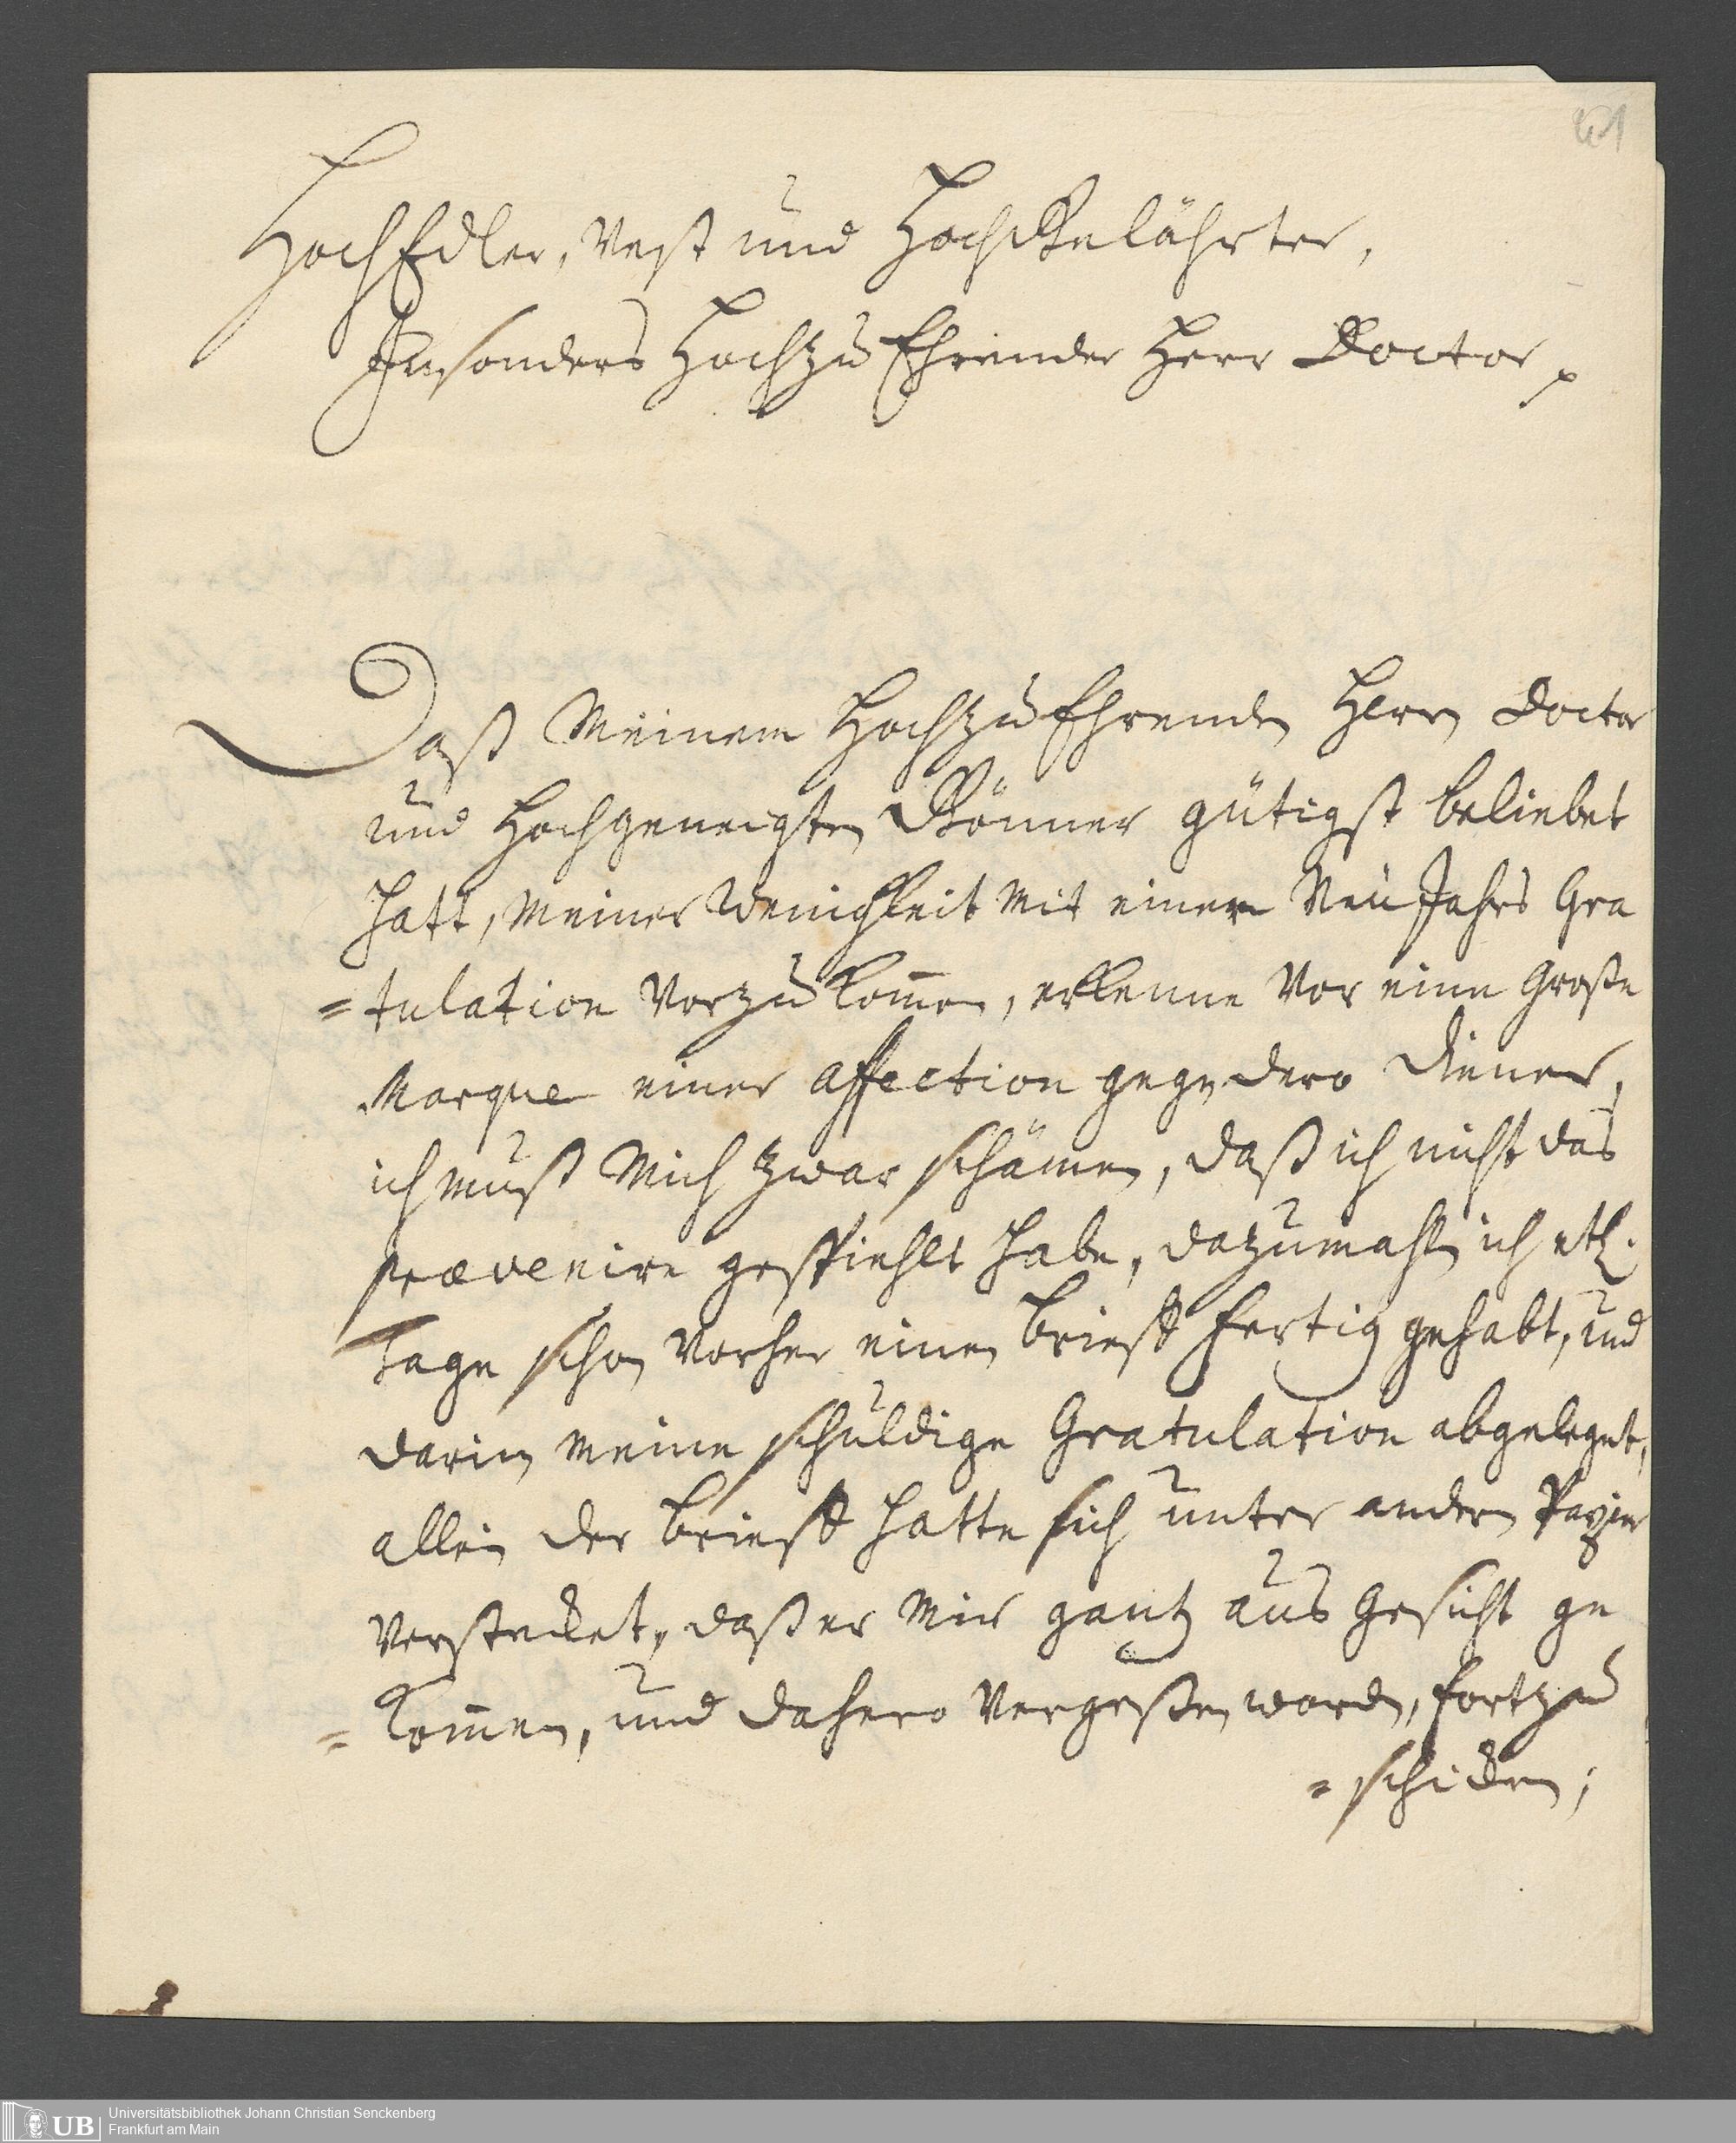 401
HochEdler, Vest und HochGelährter,
Insonders HochzuEhrender Herr Doctor
Daß Meinem HochzuEhrenden Herrn Doctor
und Hochgeneigten Gönner gütigst beliebet
hatt, meiner Wenigkeit mit einem NeuJahrs Gra
=tulation vorzukom̄en, erkenne vor eine Große
Marque einer affection gegen dero Diener,
ich muß Mich zwar schämen, daß ich nicht das
prævenire gespiehlt habe, dazumahln ich etl.
Tage schon vorher einen brieff fertig gehabt, und
darin meine schuldige Gratulation abgeleget,
allein der brieff hatte sich unter andern Papier
verstecket, daß er mir gantz aus Gesicht ge
=kom̄en, und dahero vergeßen worden, fortzu
=schicken;
UB Universitätsbibliothek Johann Christian Senckenberg
Frankfurt am Main